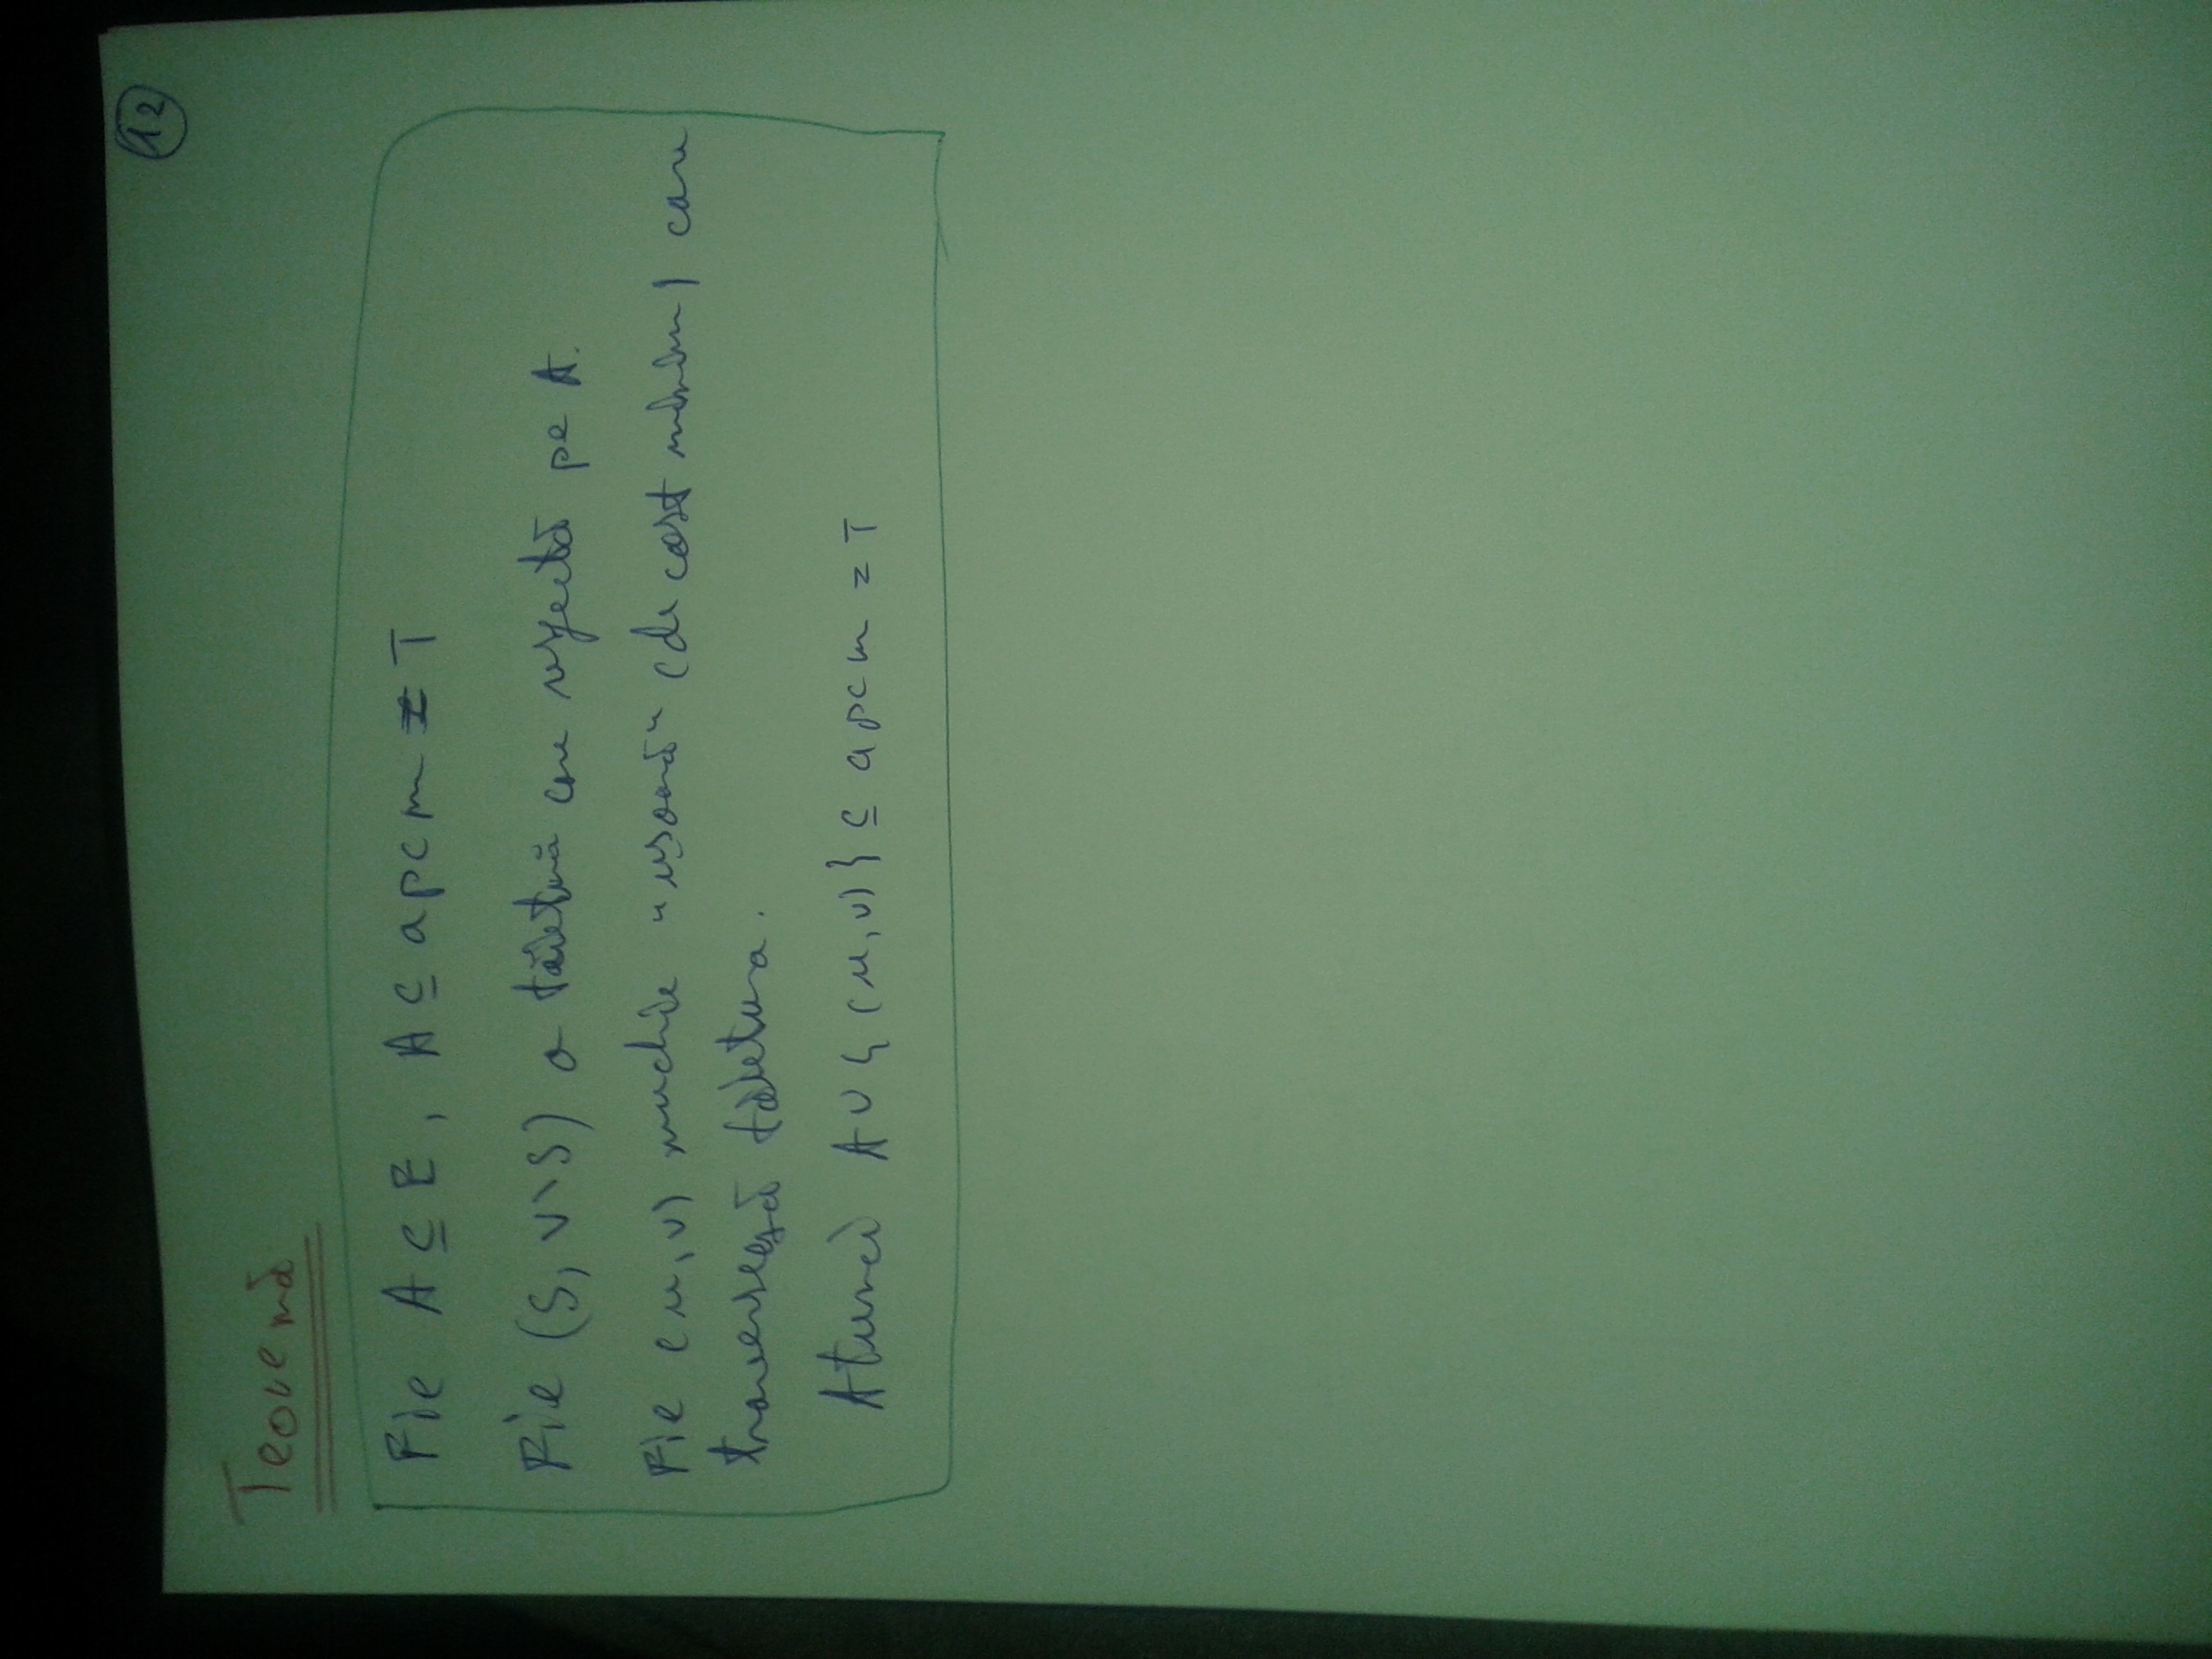 12
Teoremă
Fie A ⊆ E, A ⊆ apcm = T
Fie (S, V\S) o tăietură care respectă pe A.
Fie (u,v) muchie "ușoară" (de cost minim) care
traversează tăietura.
Atunci A ∪ {(u,v)} ⊆ apcm = T